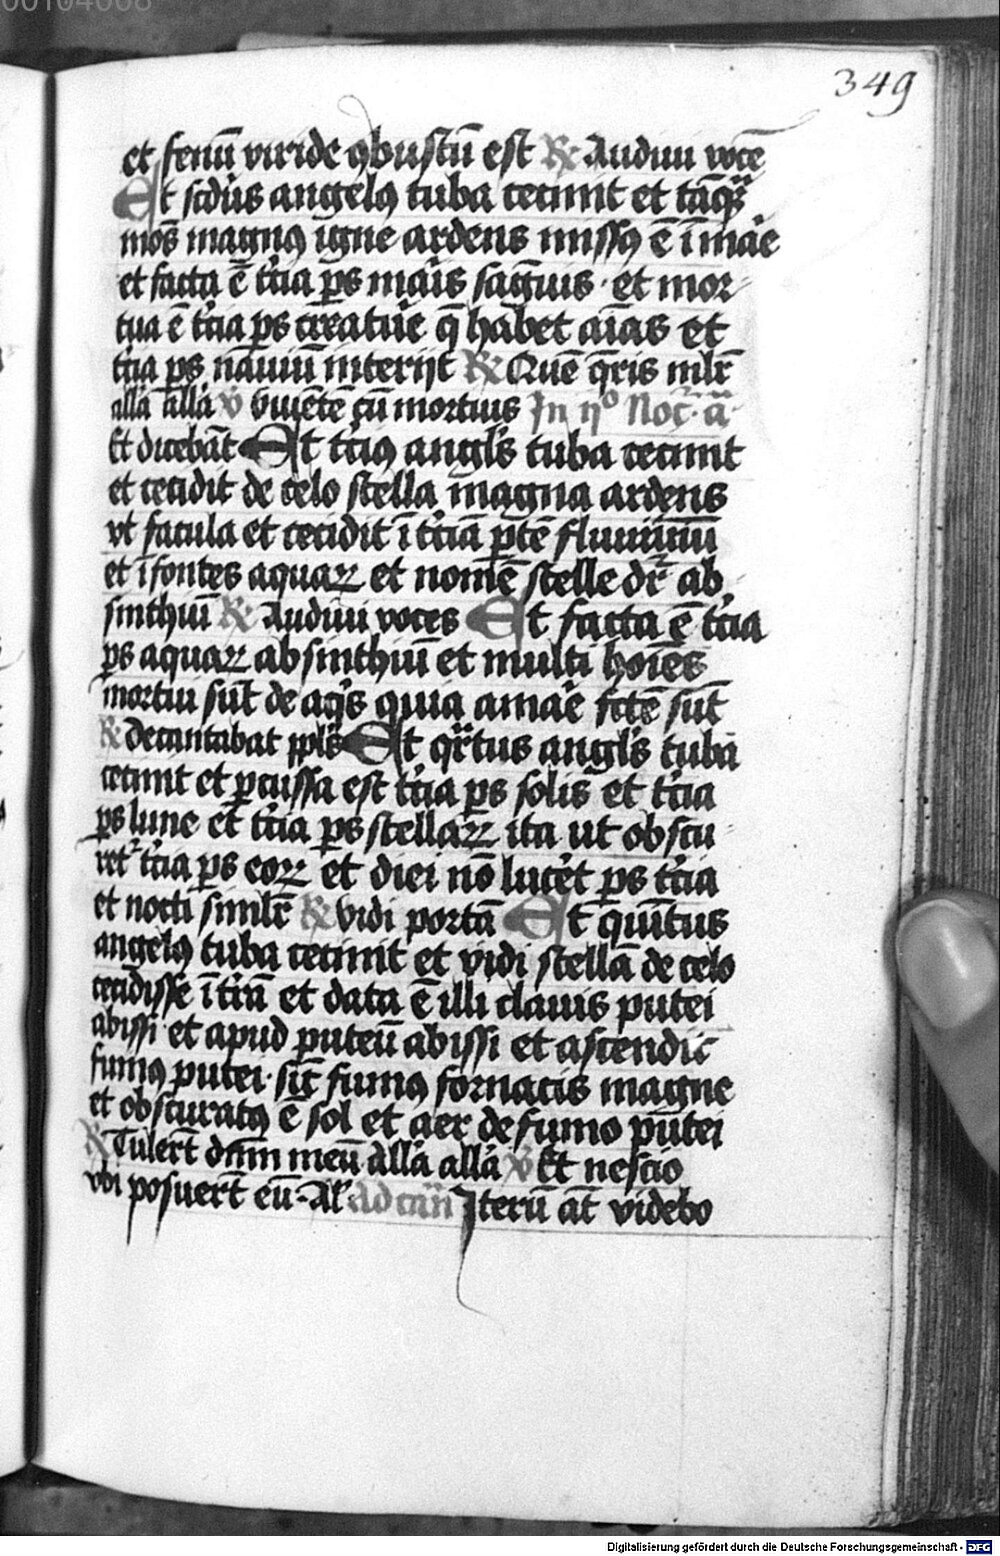 00104668
349
et fenū viride ꝯbustū est ℟ Audiui vocē
Et scd̄us angelꝰ tuba cecinit et tāqͣꝫ
mōs magnꝰ igne ardens missꝰ ē ī māe
et facta ē t̄cia ꝑs māis sāguis · et mor⸗
tua ē t̄cia ꝑs creatūe q̄ habēt aīas et
t̄cia ꝑs nauiū interijt ℟ Quē q̄ris ml̄r
all̄a all̄a ℣ viuētē cū mortuis In ijº Noc̄· a̅·
Et dicebāt Et t̄ciꝰ angl̄s tuba cecinit
et cecidit de celo stella magna ardens
vt facula et cecidit ī t̄ciā ꝑtē fluuiuū
et ī fontes aquaꝝ et nomē stelle dr̄ ab
sinthiū ℟ Audiui voces Et facta ē t̄cia
ꝑs aquaꝝ absinthiū et multi hoīes
mortui sūt de aqͥs quia amāe fc̄te sūt
℟ Decantabat ppl̄s Et qͣrtus angl̄s tuba
cecinit et ꝑcussa est t̄cia ꝑs solis et t̄cia
ꝑs lune et t̄cia ꝑs stellaꝝ ita ut obscu⸗
ret᷑ t̄cia ꝑs eoꝝ et diei nō lucēt ꝑs t̄cia
et nocti simil̄r ℟ vidi portā Et quītus
angelꝰ tuba cecinit et vidi stellā de celo
cecidisse ī t̄rā et data ē illi clauis putei
abissi et apud puteū abissi et ascendit
fumꝰ putei· sic̄ fumꝰ fornacis magne
et obscuratꝰ ē sol et aer de fumo putei
℟ Tulert̄ dn̄m meū all̄a all̄a ℣ Et nescio
vbi posuert̄ eū· Al̄ Ad cā̄n Iterū āt videbo
Digitalisierung gefördert durch die Deutsche Forschungsgemeinschaft - DFG